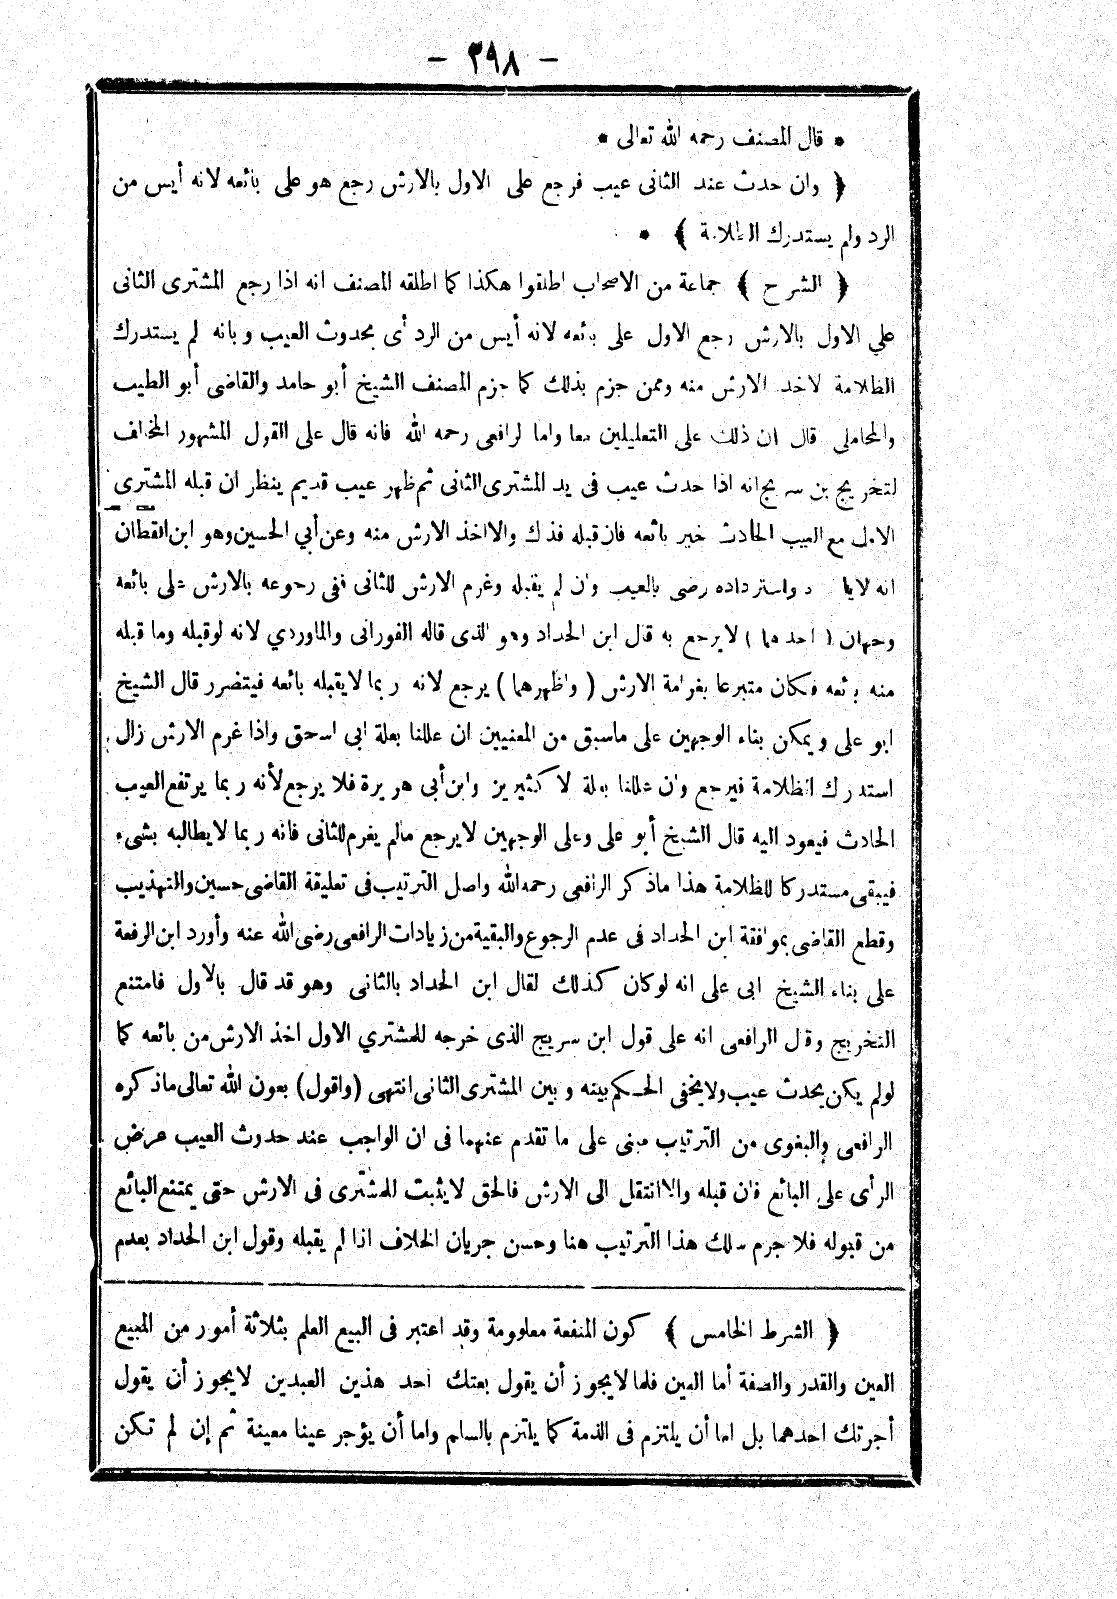 - ٢٩٨ -
* قال المصنف رحمه الله تعالى *
﴿ وان حدث عند الثانى عيب فرجع على الاول بالارش رجع هو على بائعه لانه أيس من
الرد ولم يستدرك الظلامة ﴾ *
﴿ الشرح ﴾ جماعة من الاصحاب اطلقوا هكذا كما اطلقه المصنف انه اذا رجع المشترى الثانى
على الاول بالارش رجع الاول على بائعه لانه أيس من الرد أى بحدوث العيب وبانه لم يستدرك
الظلامة لاخذ الارش منه وممن جزم بذلك كما جزم المصنف الشيخ أبو حامد والقاضى أبو الطيب
والمحاملى قال ان ذلك على التعليلين معا واما لرافعى رحمه الله فانه قال على القول المشهور المخالف
لتخريج بن سريج انه اذا حدث عيب فى يد المشترى الثانى ثم ظهر عيب قديم ينظر ان قبله المشترى
الاول مع العيب الحادث خير بائعه فان قبله فذك والا اخذ الارش منه وعن أبي الحسين وهو ابن القطان
انه لا واسترداده رضى بالعيب وان لم يقبله وغرم الارش للثانى ففى رجوعه بالارش على بائعه
وجهان ( احدهما ) لا يرجع به قال ابن الحداد وهو الذى قاله الفورانى والماوردي لانه لو قبله وما قبله
منه بائعه فكان متبرعا بغرامة الارش ( واظهرهما ) يرجع لانه ربما لا يقبله بائعه فيتضرر قال الشيخ
ابو على ويمكن بناء الوجهين على ماسبق من المعنيين ان عللنا بعلة ابى اسحق واذا غرم الارش زال
استدراك الظلامة فيرجع وان عللنا بعلة لا كثيرين وابن أبى هريرة فلا يرجع لأنه ربما يرتفع العيب
الحادث فيعود اليه قال الشيخ أبو على وعلى الوجهين لا يرجع مالم يغرم للثانى فانه ربما لا يطالبه بشىء
فيبقى مستدركا للظلامة هذا ماذكر الرافعى رحمه الله واصل الترتيب فى تعليقة القاضى حسين والتهذيب
وقطع القاضى بموافقة ابن الحداد فى عدم الرجوع والبقية من زيادات الرافعى رضى الله عنه وأورد ابن الرفعة
على بناء الشيخ ابى على انه لو كان كذلك لقال ابن الحداد بالثانى وهو قد قال بالاول فامتنع
التخريج وقال الرافعى انه على قول ابن سريج الذى خرجه للمشتري الاول اخذ الارش من بائعه كما
لو لم يكن يحدث عيب ولا يخفى الحكم بينه وبين المشترى الثانى انتهى (واقول) بعون الله تعالى ماذكره
الرافعى والبغوى من الترتيب مبنى على ما تقدم عنهما فى ان الواجب عند حدوث العيب عرض
الرأى على البائع فان قبله والا انتقل الى الارش فالحق لا يثبت للمشترى فى الارش حتى يمتنع البائع
من قبوله فلا جرم سلك هذا الترتيب هنا وحسن جريان الخلاف اذا لم يقبله وقول ابن الحداد بعدم
﴿ الشرط الخامس ﴾ كون المنفعة معلومة وقد اعتبر فى البيع العلم بثلاثة أمور من المبيع
العين والقدر والصفة أما العين فلما لا يجوز أن يقول بعتك احد هذين العبدين لا يجوز أن يقول
أجرتك احدهما بل اما أن يلتزم فى الذمة كما يلتزم بالسلم واما أن يؤجر عينا معينة ثم إن لم تكن